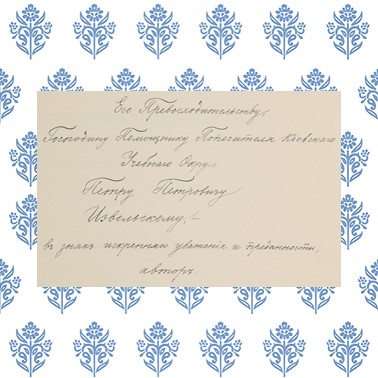 Его Превосходительству,
Господину Помощнику Попечителя Кіевскаго
Учебнаго Округа
Петру Петровичу
Извольскому,–
въ знакъ искренняго уваженія и преданности,
авторъ